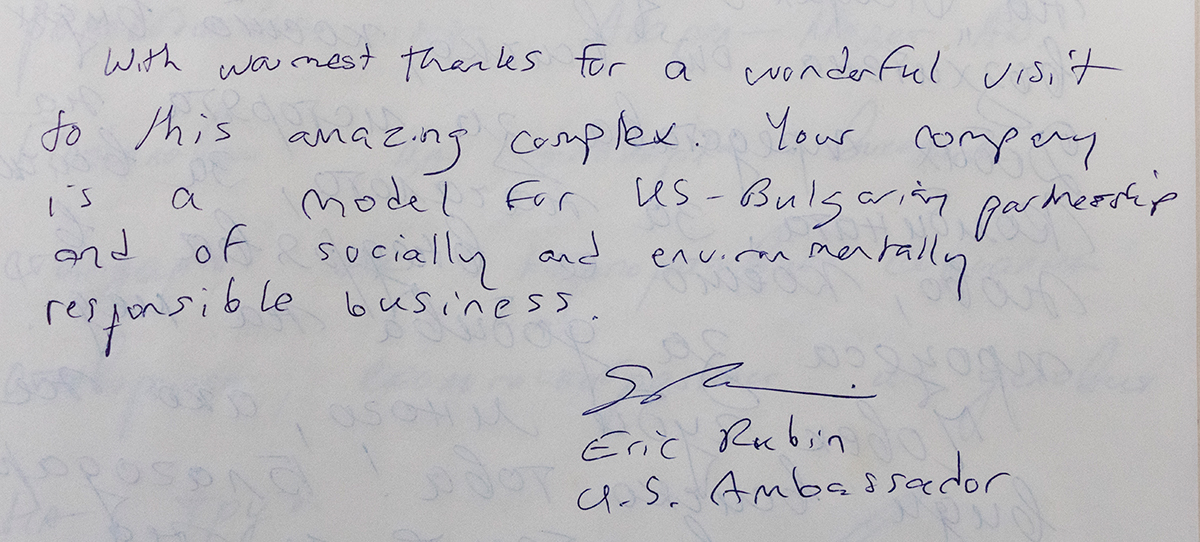 With warmest thanks for a wonderful visit
to this amazing complex. Your company
is a model for US-Bulgarian partnership
and of socially and environmentally
responsible business.
Eric Rubin
U.S. Ambassador